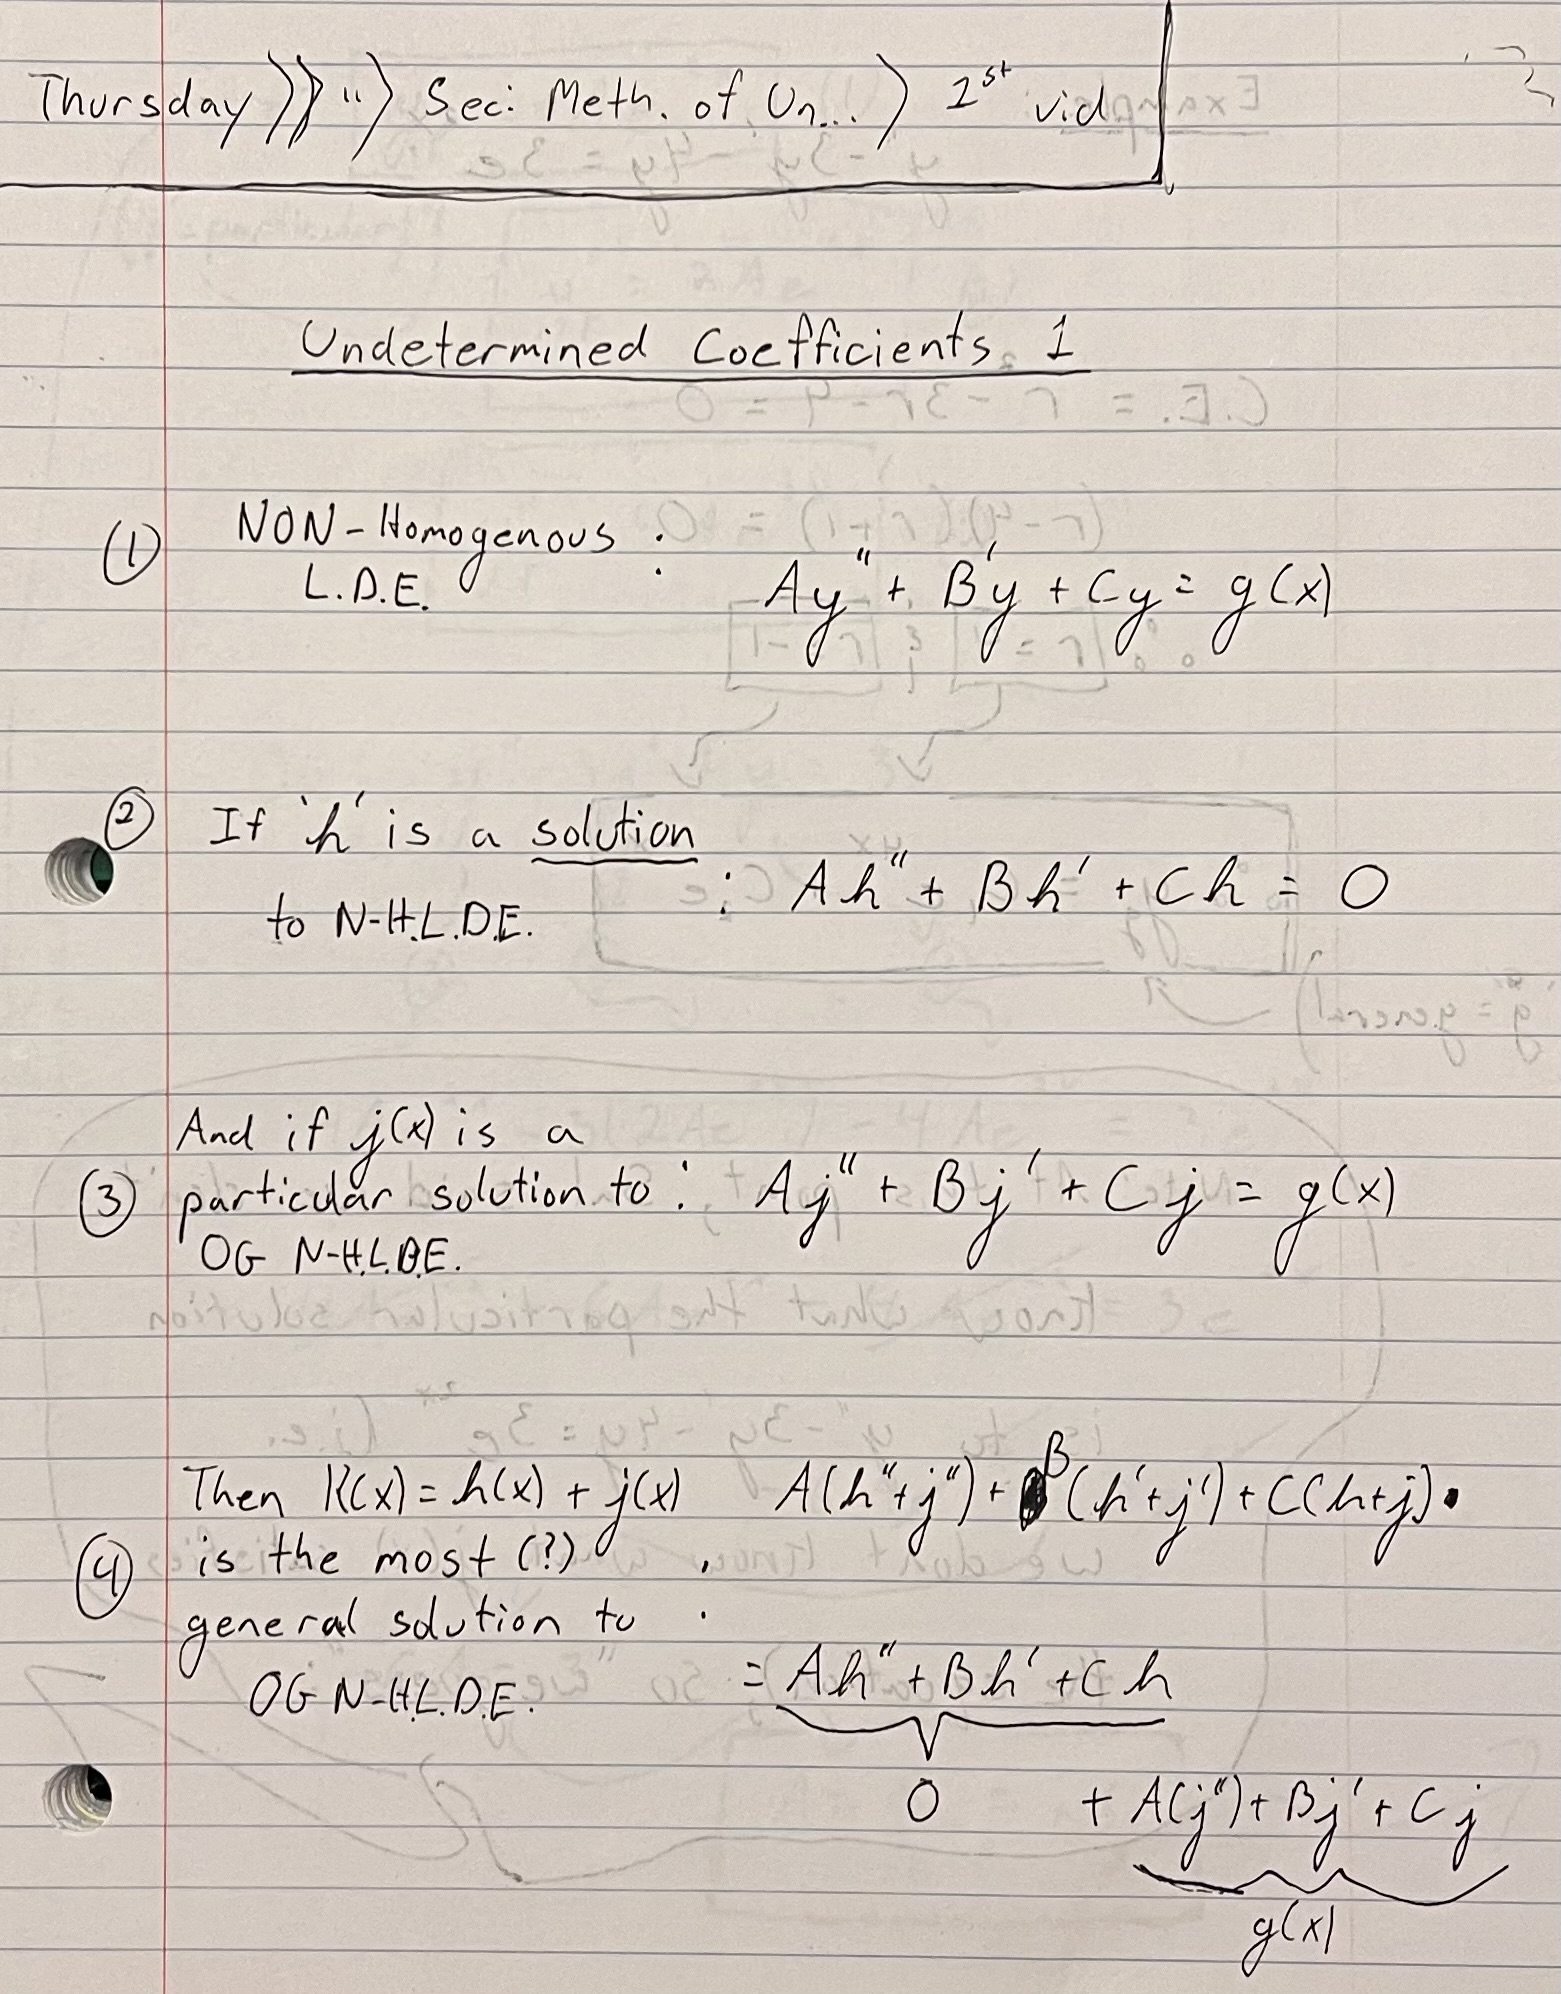 Thursday >>> " > Sec: Meth. of Un... > 1st vid
Undetermined Coefficients 1
(1) NON-Homogenous L.D.E. : Ay" + B'y + Cy = g(x)
(2) If 'h' is a solution
to N-H.L.D.E. : Ah" + Bh' + Ch = 0
And if j(x) is a
(3) particular solution to : Aj" + Bj' + Cj = g(x)
OG N-H.L.D.E.
Then K(x) = h(x) + j(x) A(h"+j") + B(h'+j') + C(h+j).
(4) is the most (?) :
general solution to
OG N-H.L.D.E. = Ah" + Bh' + Ch
0 + A(j") + Bj' + Cj
g(x)